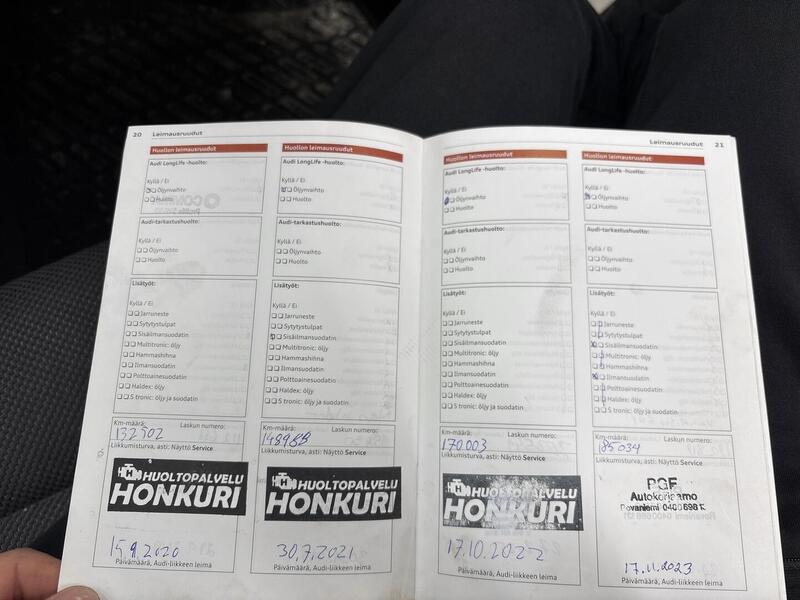 20 Leimausruudut
Huollon leimausruudut
Audi LongLife -huolto:
Kyllä / Ei
Öljynvaihto
Huolto
Audi-tarkastushuolto:
Kyllä / Ei
Öljynvaihto
Huolto
Lisätyöt:
Kyllä / Ei
Jarruneste
Sytytystulpat
Sisäilmansuodatin
Multitronic: öljy
Hammashihna
Ilmansuodatin
Polttoainesuodatin
Haldex: öljy
S tronic: öljy ja suodatin
Km-määrä: Laskun numero:
132502
Liikkumisturva, asti: Näyttö Service
HUOLTOPALVELU
HONKURI
15.9.2020
Päivämäärä, Audi-liikkeen leima
Huollon leimausruudut
Audi LongLife -huolto:
Kyllä / Ei
Öljynvaihto
Huolto
Audi-tarkastushuolto:
Kyllä / Ei
Öljynvaihto
Huolto
Lisätyöt:
Kyllä / Ei
Jarruneste
Sytytystulpat
Sisäilmansuodatin
Multitronic: öljy
Hammashihna
Ilmansuodatin
Polttoainesuodatin
Haldex: öljy
S tronic: öljy ja suodatin
Km-määrä: Laskun numero:
Liikkumisturva, asti: Näyttö Service
HUOLTOPALVELU
HONKURI
30.7.2021
Päivämäärä, Audi-liikkeen leima
Leimausruudut 21
Huollon leimausruudut
Audi LongLife -huolto:
Kyllä / Ei
Öljynvaihto
Huolto
Audi-tarkastushuolto:
Kyllä / Ei
Öljynvaihto
Huolto
Lisätyöt:
Kyllä / Ei
Jarruneste
Sytytystulpat
Sisäilmansuodatin
Multitronic: öljy
Hammashihna
Ilmansuodatin
Polttoainesuodatin
Haldex: öljy
S tronic: öljy ja suodatin
Km-määrä: Laskun numero:
170.003
Liikkumisturva, asti: Näyttö Service
HUOLTOPALVELU
HONKURI
17.10.2022
Päivämäärä, Audi-liikkeen leima
Huollon leimausruudut
Audi LongLife -huolto:
Kyllä / Ei
Öljynvaihto
Huolto
Audi-tarkastushuolto:
Kyllä / Ei
Öljynvaihto
Huolto
Lisätyöt:
Kyllä / Ei
Jarruneste
Sytytystulpat
Sisäilmansuodatin
Multitronic: öljy
Hammashihna
Ilmansuodatin
Polttoainesuodatin
Haldex: öljy
S tronic: öljy ja suodatin
Km-määrä: Laskun numero:
185034
Liikkumisturva, asti: Näyttö Service
PGF
Autokorjaamo
Rovaniemi
17.11.2023
Päivämäärä, Audi-liikkeen leima